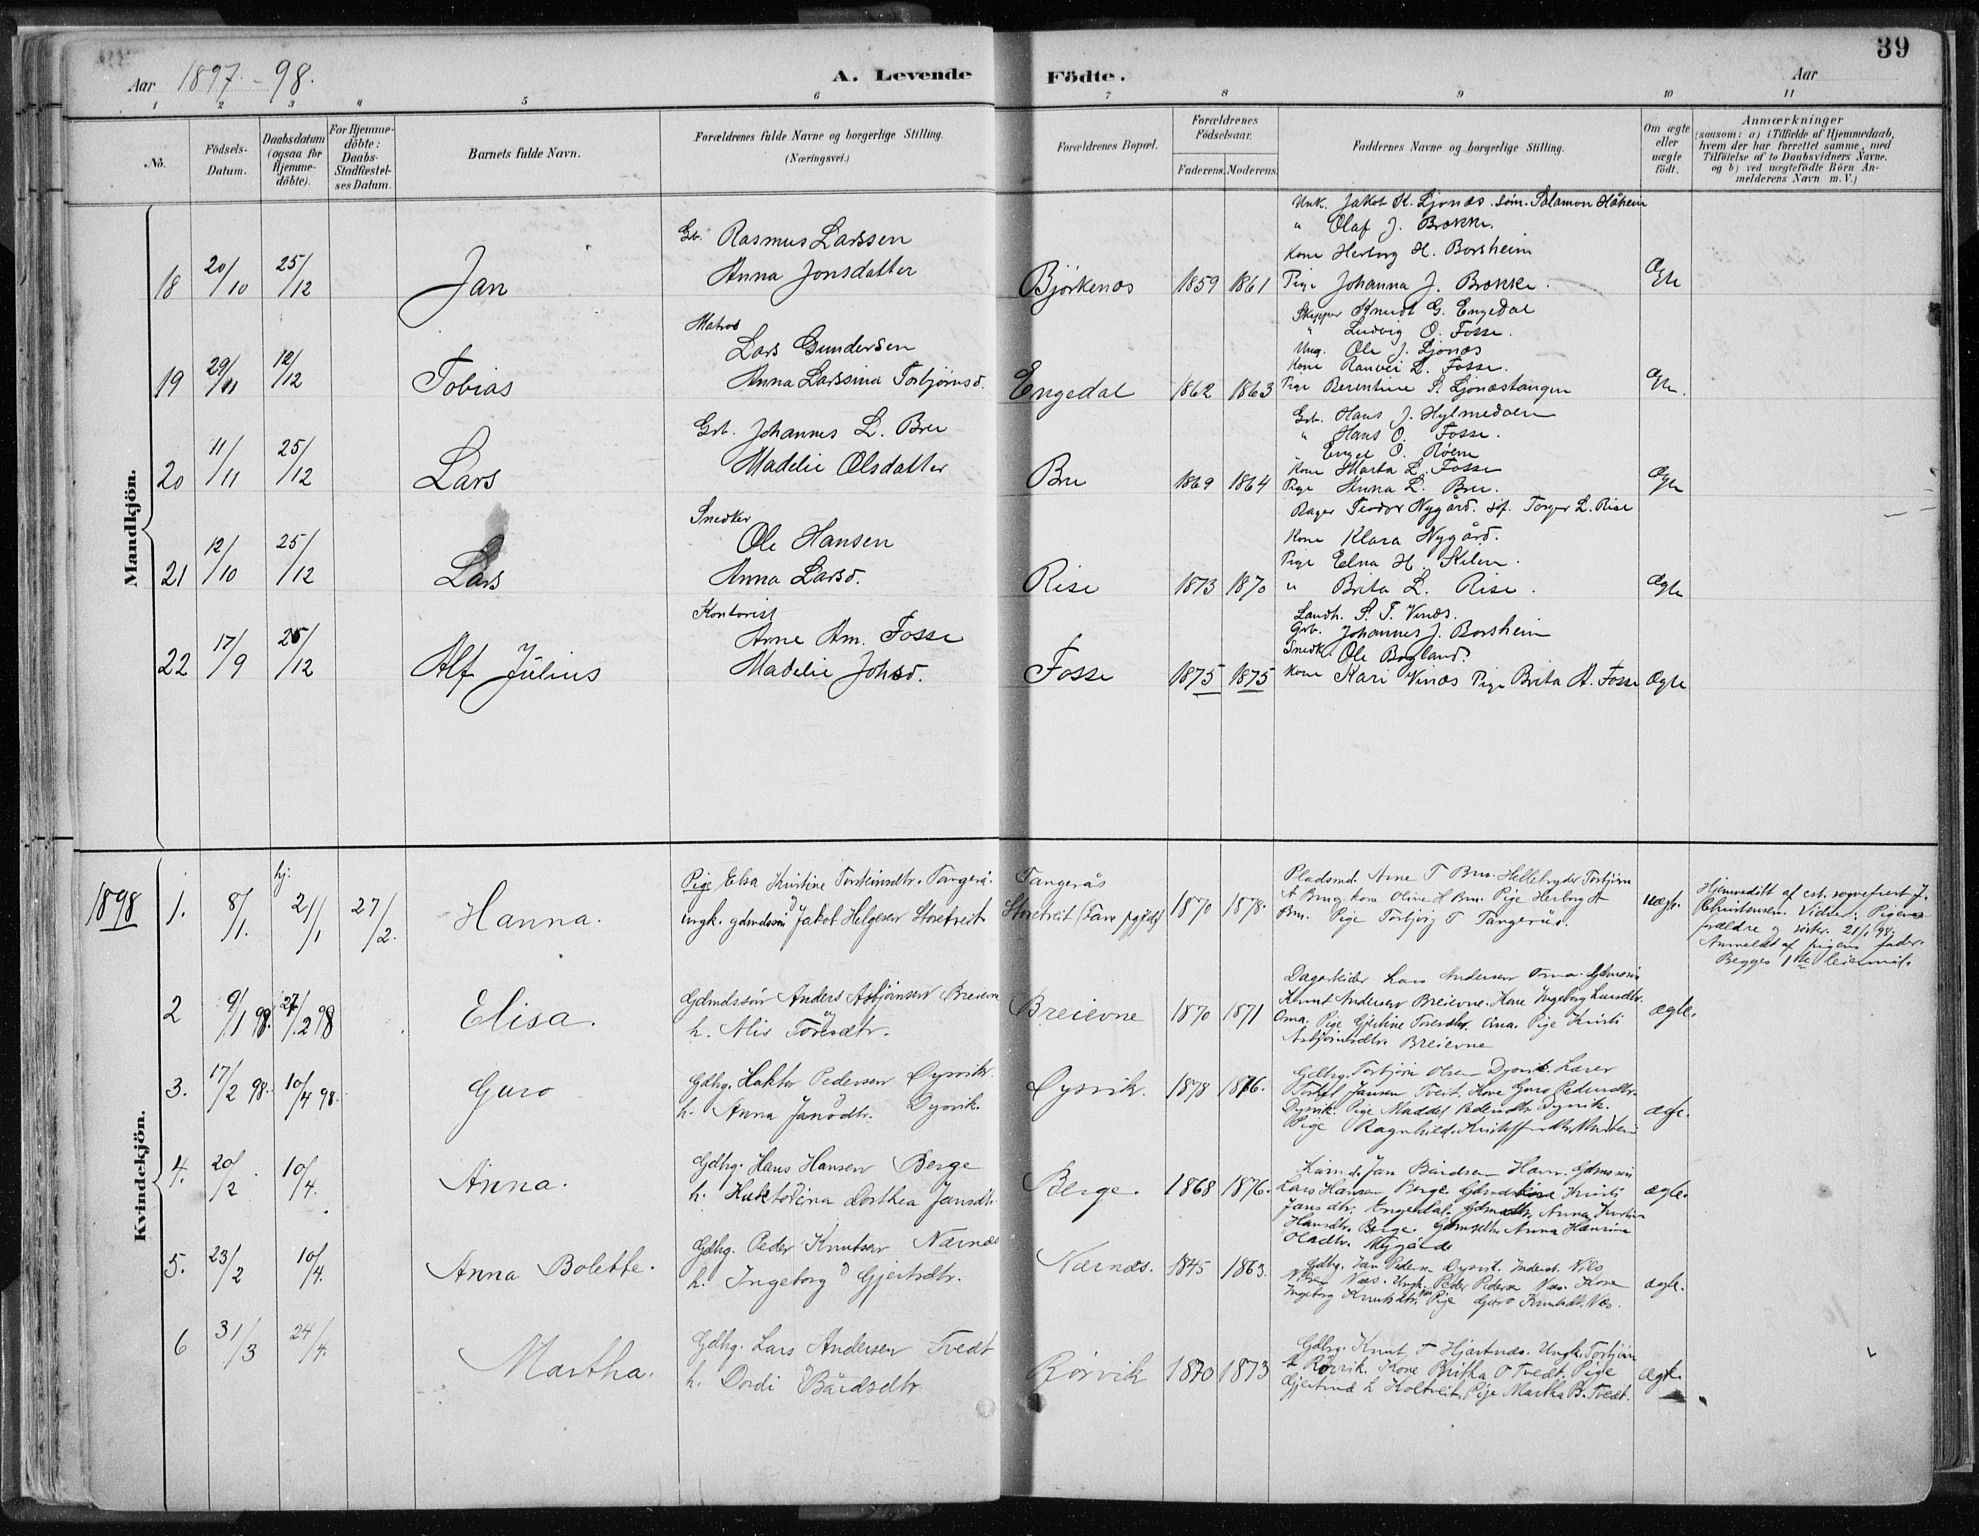 39
Aar 1897-98. A. Levende Födte. Aar
1 2 3 4 5 6 7 8 9 10 11
No.
Födsels-
Datum.
Daabsdatum
(ogsaa for
Hjemme-
döbte).
For Hjemme-
döbte:
Daabs-
Stadfæstel-
ses Datum.
Barnets fulde Navn.
Forældrenes fulde Navne og borgerlige Stilling.
(Næringsvei.)
Forældrenes Bopæl.
Forældrenes
Födselsaar.
Faderens. Moderens.
Faddernes Navne og borgerlige Stilling.
Om ægte
eller
uægte
födt.
Anmærkninger
(saasom: a) i Tilfælde af Hjemmedaab,
hvem der har forrettet samme, med
Tilföielse af to Daabsvidners Navne.
og b) ved uægtefödte Börn An-
melderens Navn m. V.)
Mandkjön.
18 20/10 25/12 Jan
Gb. Rasmus Larssen
Anna Jonsdatter
Björkenæs 1859 1861
Unk. Jakob K. Ljonæs. söm. Salamon Håheim
" Olaf J. Brække.
Kone Herborg H. Borsheim
Pige Johanna J. Brække.
Ægte
19 29/11 12/12 Tobias
Matros
Lars Gundersen
Anna Larssina Torbjörnsd.
Engedal 1862 1863
Skipper Knudt G. Engedal
" Ludvig O. Fosse.
Ung. Ole J. Ljonæs
Kone Ranvei L. Fosse.
Pige Berentine S. Ljonæstangen
Ægte.
20 11/11 25/12 Lars
Grb. Johannes L. Bru
Madelie Olsdatter
Bru 1869 1864
Grb. Hans J. Hylmedalen
" Hans O. Fosse.
" Engel O. Röen
Kone Marta L. Fosse
Pige Anna L. Bru.
Ægte
21 12/10 25/12 Lars
Snedker
Ole Hansen
Anna Larsd.
Rise 1873 1870
Bager Teodor Nygård. söf. Torger L. Rise
Kone Klara Nygård.
Pige Elna H. Kilen.
" Brita L. Rise.
Ægte
22 17/9 25/12 Alf Julius
Kontorist
Arne Am. Fosse
Madelie Johsd.
Fosse 1875 1875
Landh. S. T. Vinæs.
Grb. Johannes J. Borsheim
Snedk. Ole Bogland.
Kone Kari Vinæs Pige Brita A. Fosse
Ægte
Kvindekjön.
1898 1. 8/1. hj. 21/1 27/2. Hanna.
Pige Elsa Kristine Torsteinsdtr. Tangerås.
ungk. gdmdssön Jakob Helgesen Storetveit.
Tangerås
Storetveit (Fane pgjeld) 1870 1878.
Pladsmd. Arne T Bru. Hellebryder Torbjörn
A Bru, kone Oline H Bru. Pige Herborg A
Bru. Pige Torbjörg T Tangerås.
uægte.
Hjemmedöbt af cst. sognefrest J.
Christensen. Vidner: Pigens
forældre og söster. 21/1 98.
Anmeldt af pigens fader.
Begges 1ste leiermål.
2 9/1 98. 27/2 98 Elisa.
Gdmdssön Anders Asbjörnsen Breievne
h. Alis Toresdtr.
Breievne 1870 1871
Dagarbeider Lars Andersen Oma. Gdmssön
Knut Andersen Breievne. Kone Ingeborg Larsdtr.
Oma. Pige Gjertine Toresdtr. Oma. Pige Kristi
Asbjörnsdtr. Breievne
ægte.
3. 17/2 98. 10/4 98. Guro
Gdbrg. Haktor Pedersen Dysvik.
h. Anna Jansdtr. Dysvik.
Dysvik. 1878 1876.
Gdbrg. Torbjörn Olsen Dysvik. Lærer
Jansen Tveit. Kone Guro Pedersdtr.
Dysvik. Pige Maddel Pedersdtr. Dysvik.
Pige Ragnhild
ægte.
4. 20/2. 10/4. Anna.
Gdbrg. Hans Hansen Berge
h. Haktorina Dorthea Jansdtr.
Berge. 1868 1876.
Jan Bårdsen Gdmssön
Lars Hansen Berge. Gdmdskone Kristi
Jansdtr. Engedal. Gdmdtr. Anna Kristine
Hansdtr. Berge. Gdmsdtr. Anna Hansine
Olsdtr. Nygård
ægte.
5. 23/2 10/4. Anna Bolette.
Gdbrg. Peder Knutsen Nærnæs
h. Ingeborg Gjertsdtr.
Nærnæs. 1845 1863.
Gdbrg. Jan Pedersen Dysvik. Inderst. Nils
Næs. Ungk. Peder Pedersen Næs. Kone
Ingeborg Knutsdtr. Næs Pige Guro Knutsdtr. Næs.
ægte.
6 31/3 24/4. Martha.
Gdbrg. Lars Andersen Tvedt
h. Dordi Bårdsdtr
Rörvik 1870 1873
Gdbrg. Knut T Hjartnæs. Ungk. Torbjörn
A Rörvik. Kone Britha O Tvedt. Pige
Gjertrud L Holtveit. Pige Martha B. Tvedt.
ægte